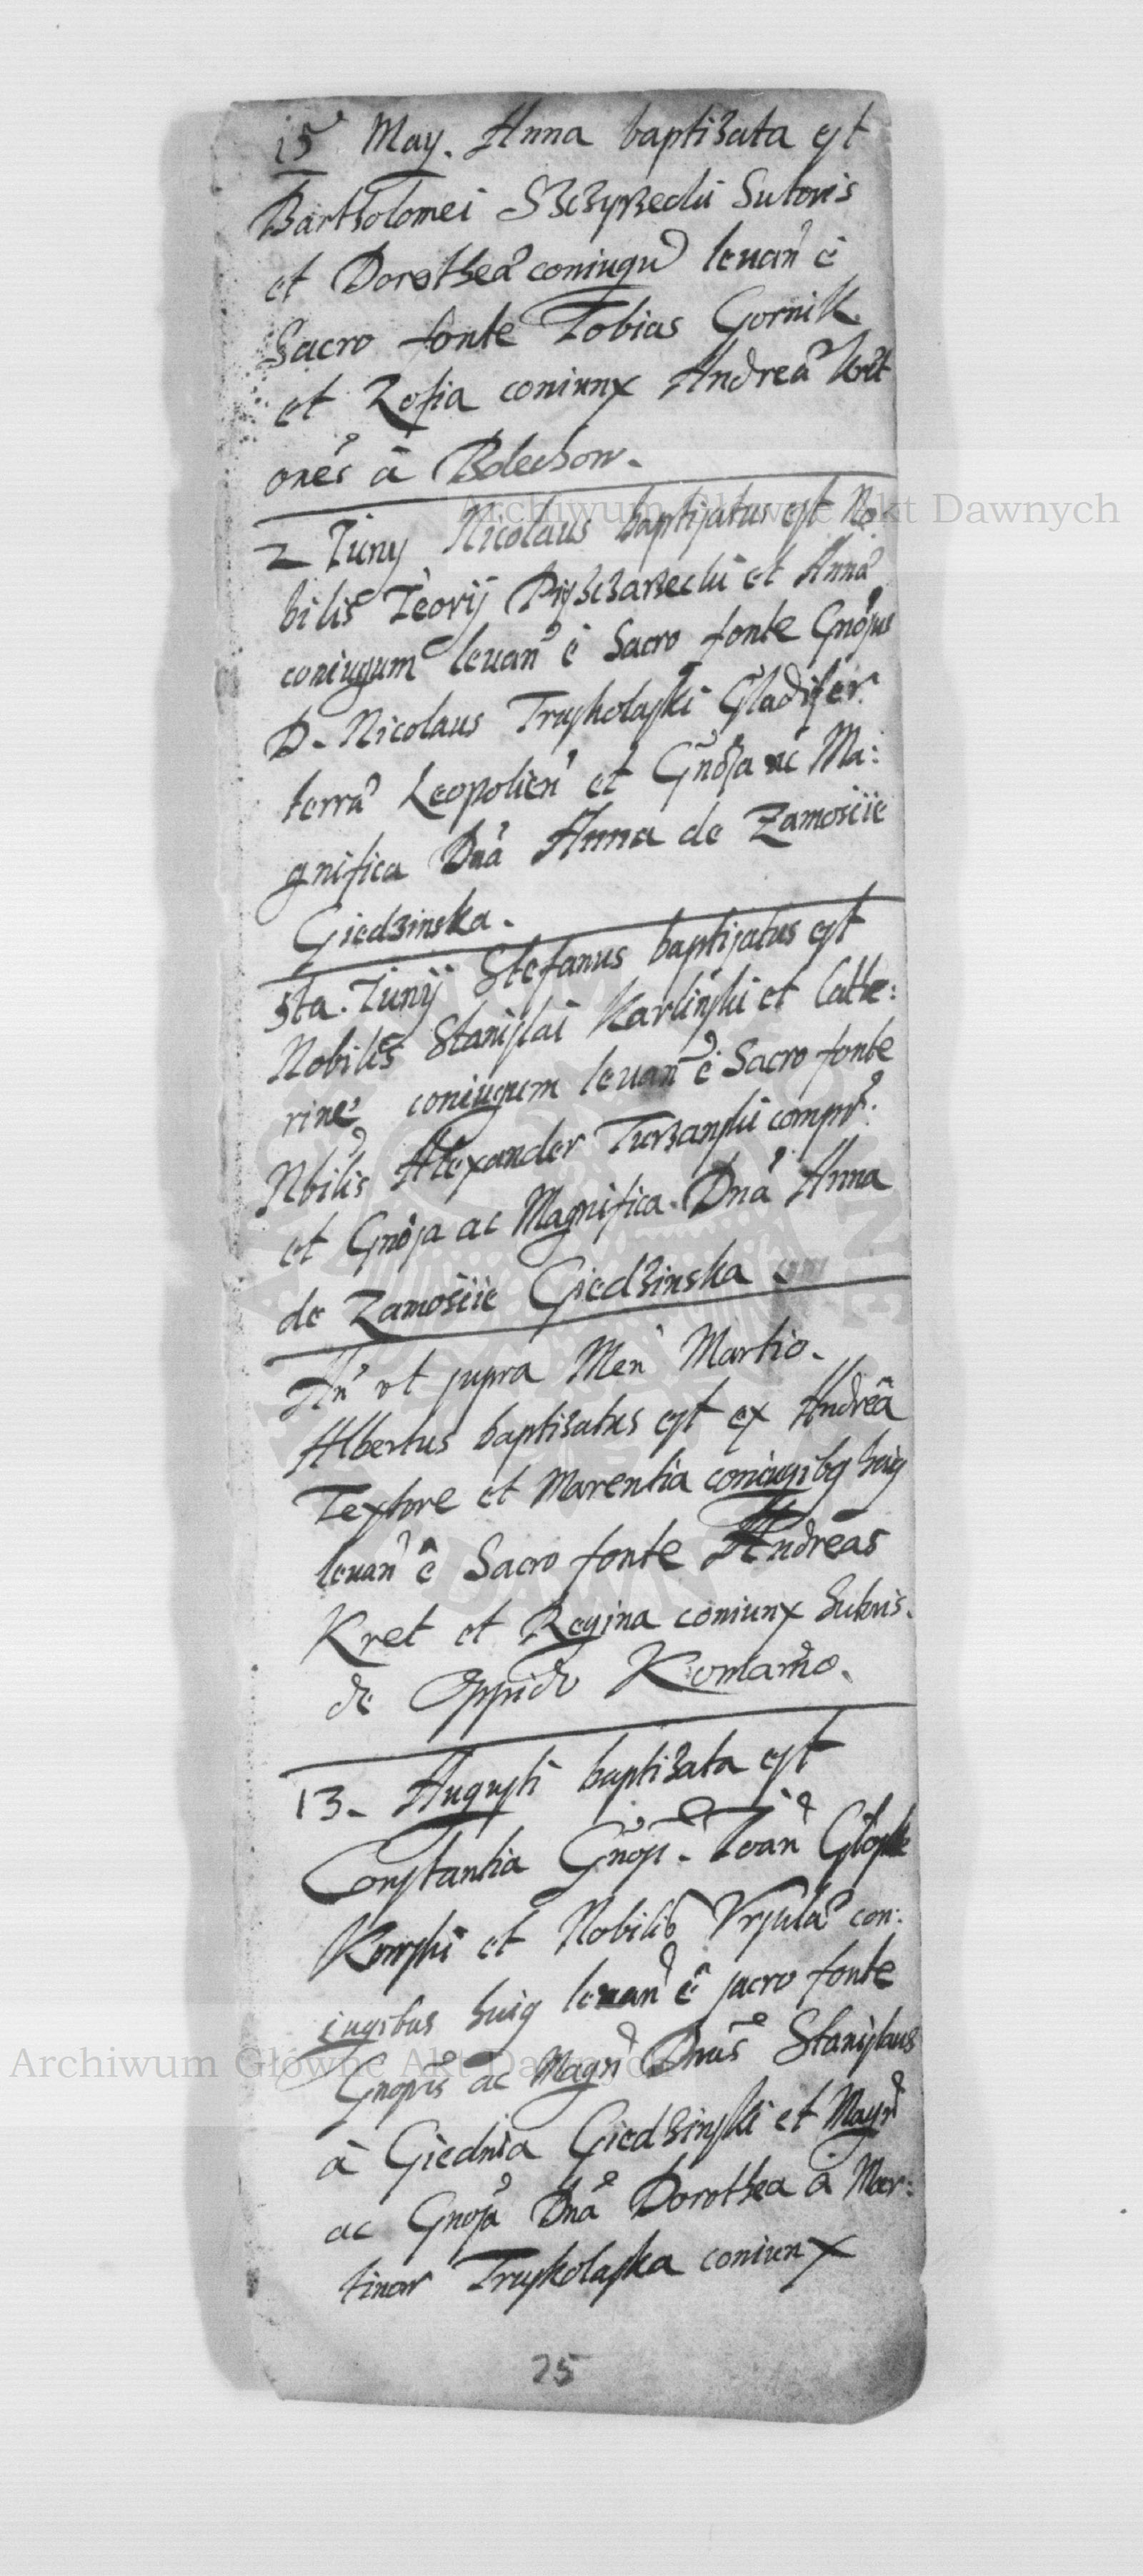 15 May. Anna baptizata est
Bartholomei Szczyrzecki Sutoris
et Dorotheae coniugũ levan è
Sacro fonte Tobias Gornik
et Zofia coniunx Andreae Kret
ones à Bolechow.
2 Iuny Nicolaus baptisatus est No:
bilis Teorij Pisczarzecki et Anna
coniugum levan è Sacro fonte Gnosus
D. Nicolaus Truskolaski Gladifer
terrae Leopolien et Gnosa ac Ma:
gnifica Dna Anna de Zamoscie
Giedzinska.
5ta. Iunij Stefanus baptisatus est
Nobilis Stanislai Karlinski et Cathe:
rine coniugum levan è Sacro fonte
Nbilis Alexander Turzanski compr.
et Gnosa ac Magnifica Dna Anna
de Zamoscie Giedzinska.
An ut supra Men Martio.
Albertus baptizatus est ex Andrea
Textore et Marentia coniugibq huiq
levan è Sacro fonte Andreas
Kret et Regina coniunx Sutoris
de Oppido Komarno.
13. Augusti baptizata est
Constantia Gnosi Ioan Glosk
Kowski et Nobilis Ursulae con:
iugibus huiq levan è sacro fonte
Gnosus ac Magn Dnus Stanislaus
à Giednia Giedzinski et Magn
ac Gnosa Dna Dorothea à Mar:
tinow Truskolaska coniunx
25
Archiwum Główne Akt Dawnych
Archiwum Główne Akt Dawnych